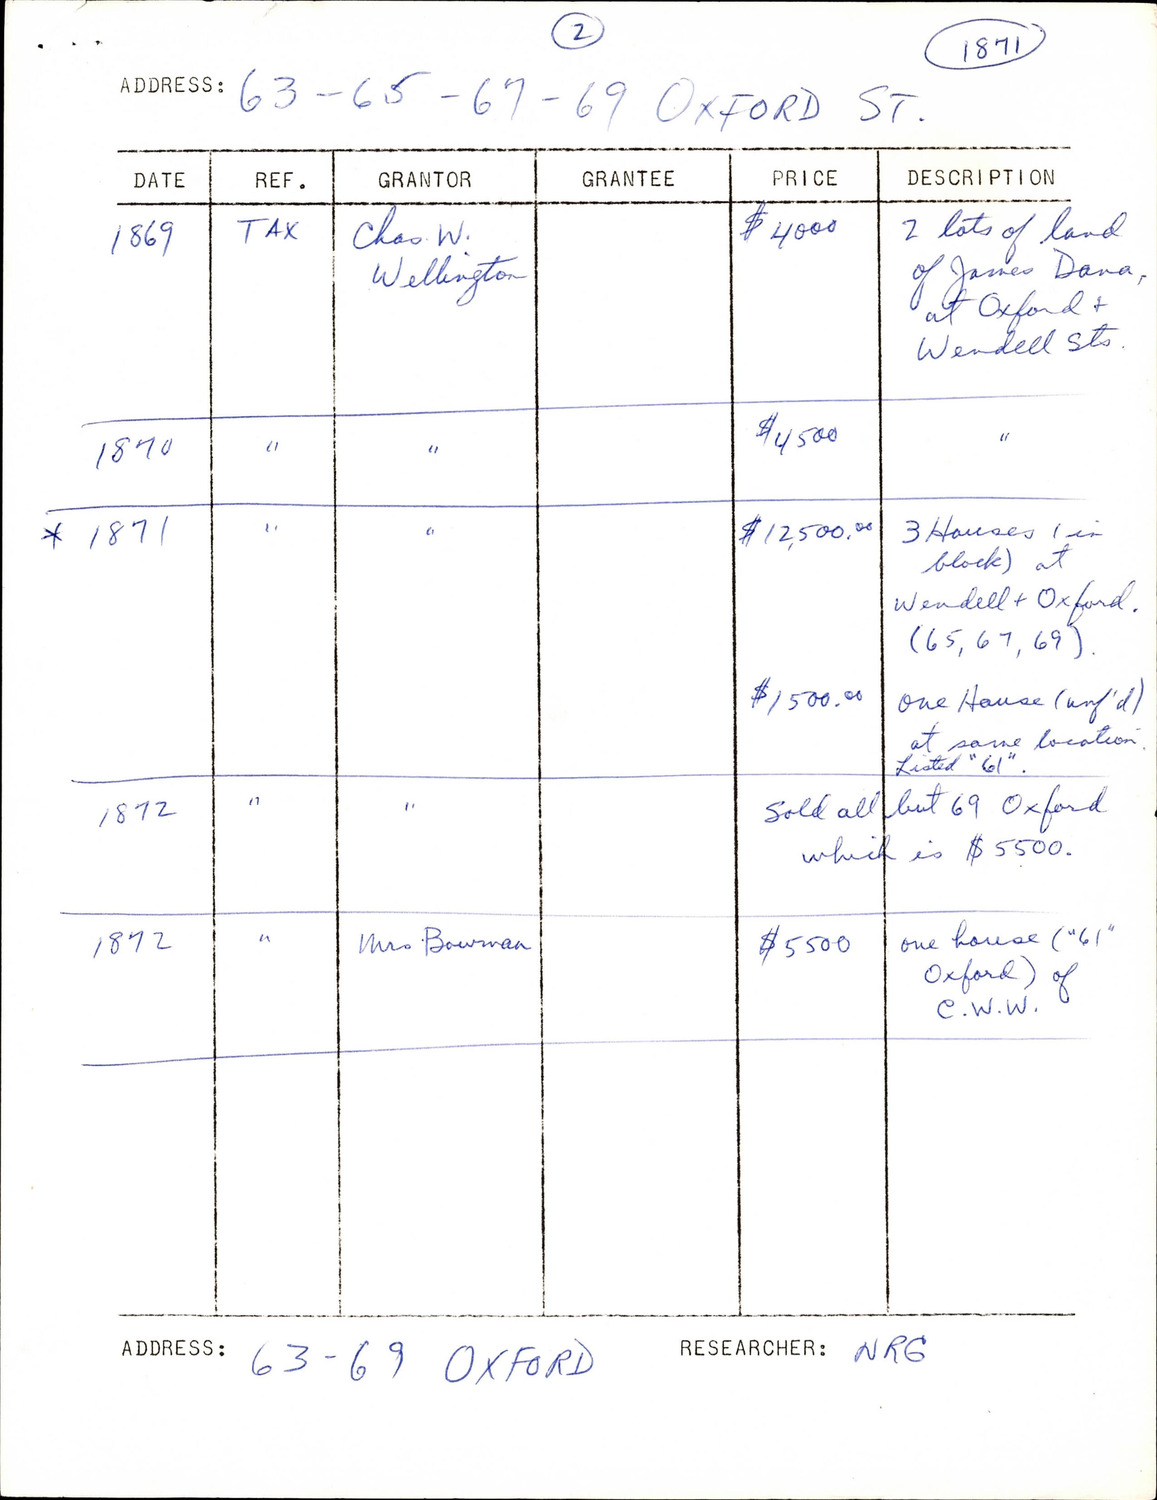 2
1871
ADDRESS: 63-65-67-69 OXFORD ST.
DATE REF. GRANTOR GRANTEE PRICE DESCRIPTION
1869 TAX Chas. W. $4000 2 lots of land
Wellington of James Dana,
at Oxford +
Wendell Sts.
1870 " " $4500 "
* 1871 " " $12,500.00 3 Houses (in
block) at
Wendell + Oxford.
(65, 67, 69).
$1500.00 one House (unf'd)
at same location.
Listed "61".
1872 " " Sold all but 69 Oxford
which is $5500.
1872 " Mrs Bowman $5500 one house ("61"
Oxford) of
C.W.W.
ADDRESS: 63-69 OXFORD RESEARCHER: NRG